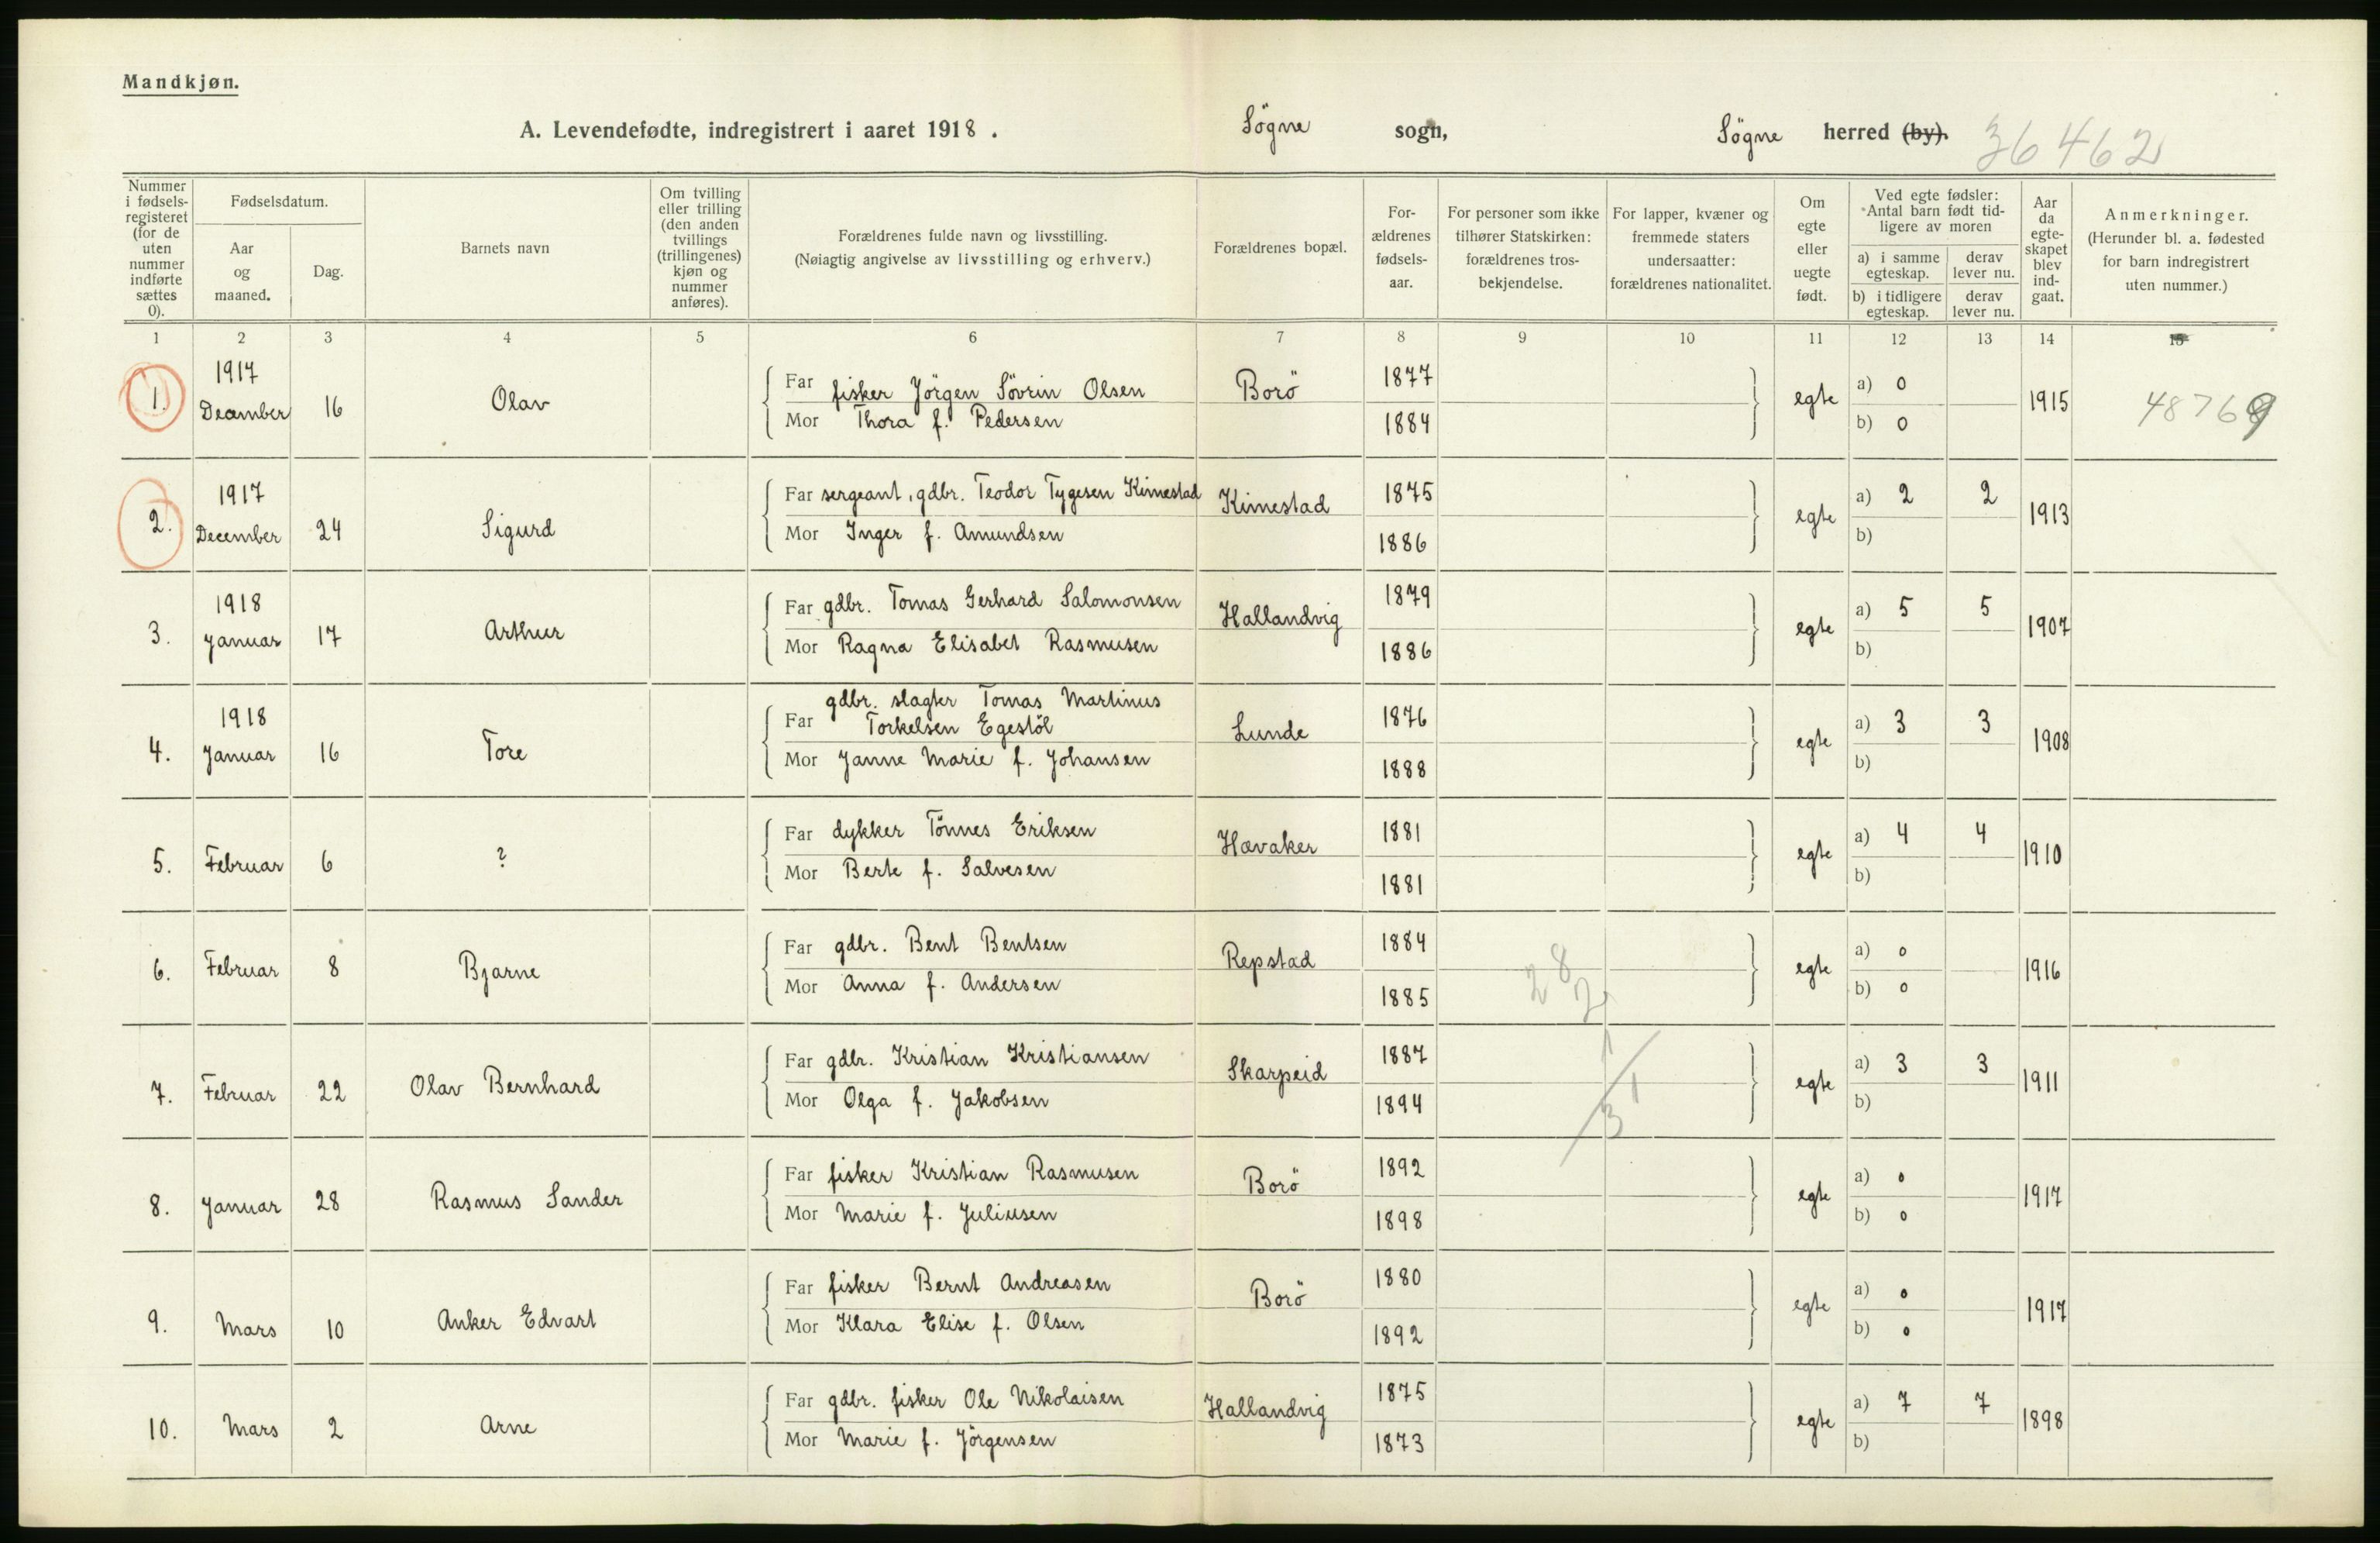 Mandkjøn.
A. Levendefødte, indregistrert i aaret 1918. Søgne sogn, Søgne herred (by). 36462
Nummer i fødsels-registeret (for de uten nummer indførte sættes 0). | Fødselsdatum. Aar og maaned. | Dag. | Barnets navn | Om tvilling eller trilling (den anden tvillings (trillingenes) kjøn og nummer anføres). | Forældrenes fulde navn og livsstilling. (Nøiagtig angivelse av livsstilling og erhverv.) | Forældrenes bopæl. | For-ældrenes fødsels-aar. | For personer som ikke tilhører Statskirken: forældrenes tros-bekjendelse. | For lapper, kvæner og fremmede staters undersaatter: forældrenes nationalitet. | Om egte eller uegte født. | Ved egte fødsler: Antal barn født tid-ligere av moren a) i samme egteskap. b) i tidligere egteskap. | derav lever nu. derav lever nu. | Aar da egte-skapet blev ind-gaat. | Anmerkninger. (Herunder bl. a. fødested for barn indregistrert uten nummer.)
1 2 3 4 5 6 7 8 9 10 11 12 13 14 15
1. 1917 December 16 Olav Far fisker Jörgen Sövrin Olsen Borö 1877 egte a) 0 1915 48769
Mor Thora f. Pedersen 1884 b) 0
2. 1917 December 24 Sigurd Far sergeant, gdbr. Teodor Tygesen Kimestad Kimestad 1875 egte a) 2 2 1913
Mor Inger f. Amundsen 1886 b)
3. 1918 Januar 17 Arthur Far gdbr. Tomas Gerhard Salomonsen Hallandvig 1879 egte a) 5 5 1907
Mor Ragna Elisabet Rasmusen 1886 b)
4. 1918 Januar 16 Tore Far gdbr. slagter Tomas Martinus
Torkelsen Egestöl Lunde 1876 egte a) 3 3 1908
Mor Janne Marie f. Johansen 1888 b)
5. Februar 6 ? Far dykker Tönnes Eriksen Havaker 1881 egte a) 4 4 1910
Mor Berte f. Salvesen 1881 b)
6. Februar 8 Bjarne Far gdbr. Bent Bentsen Repstad 1884 egte a) 0 1916
Mor Anna f. Andersen 1885 b) 0
7. Februar 22 Olav Bernhard Far gdbr. Kristian Kristiansen Skarpeid 1887 egte a) 3 3 1911
Mor Olga f. Jakobsen 1894 b)
8. Januar 28 Rasmus Sander Far fisker Kristian Rasmusen Borö 1892 egte a) 0 1917
Mor Marie f. Juliusen 1898 b) 0
9. Mars 10 Anker Edvart Far fisker Bernt Andreasen Borö 1880 egte a) 0 1917
Mor Klara Elise f. Olsen 1892 b) 0
10. Mars 2 Arne Far gdbr. fisker Ole Nikolaisen Hallandvig 1875 egte a) 7 7 1898
Mor Marie f. Jörgensen 1873 b)